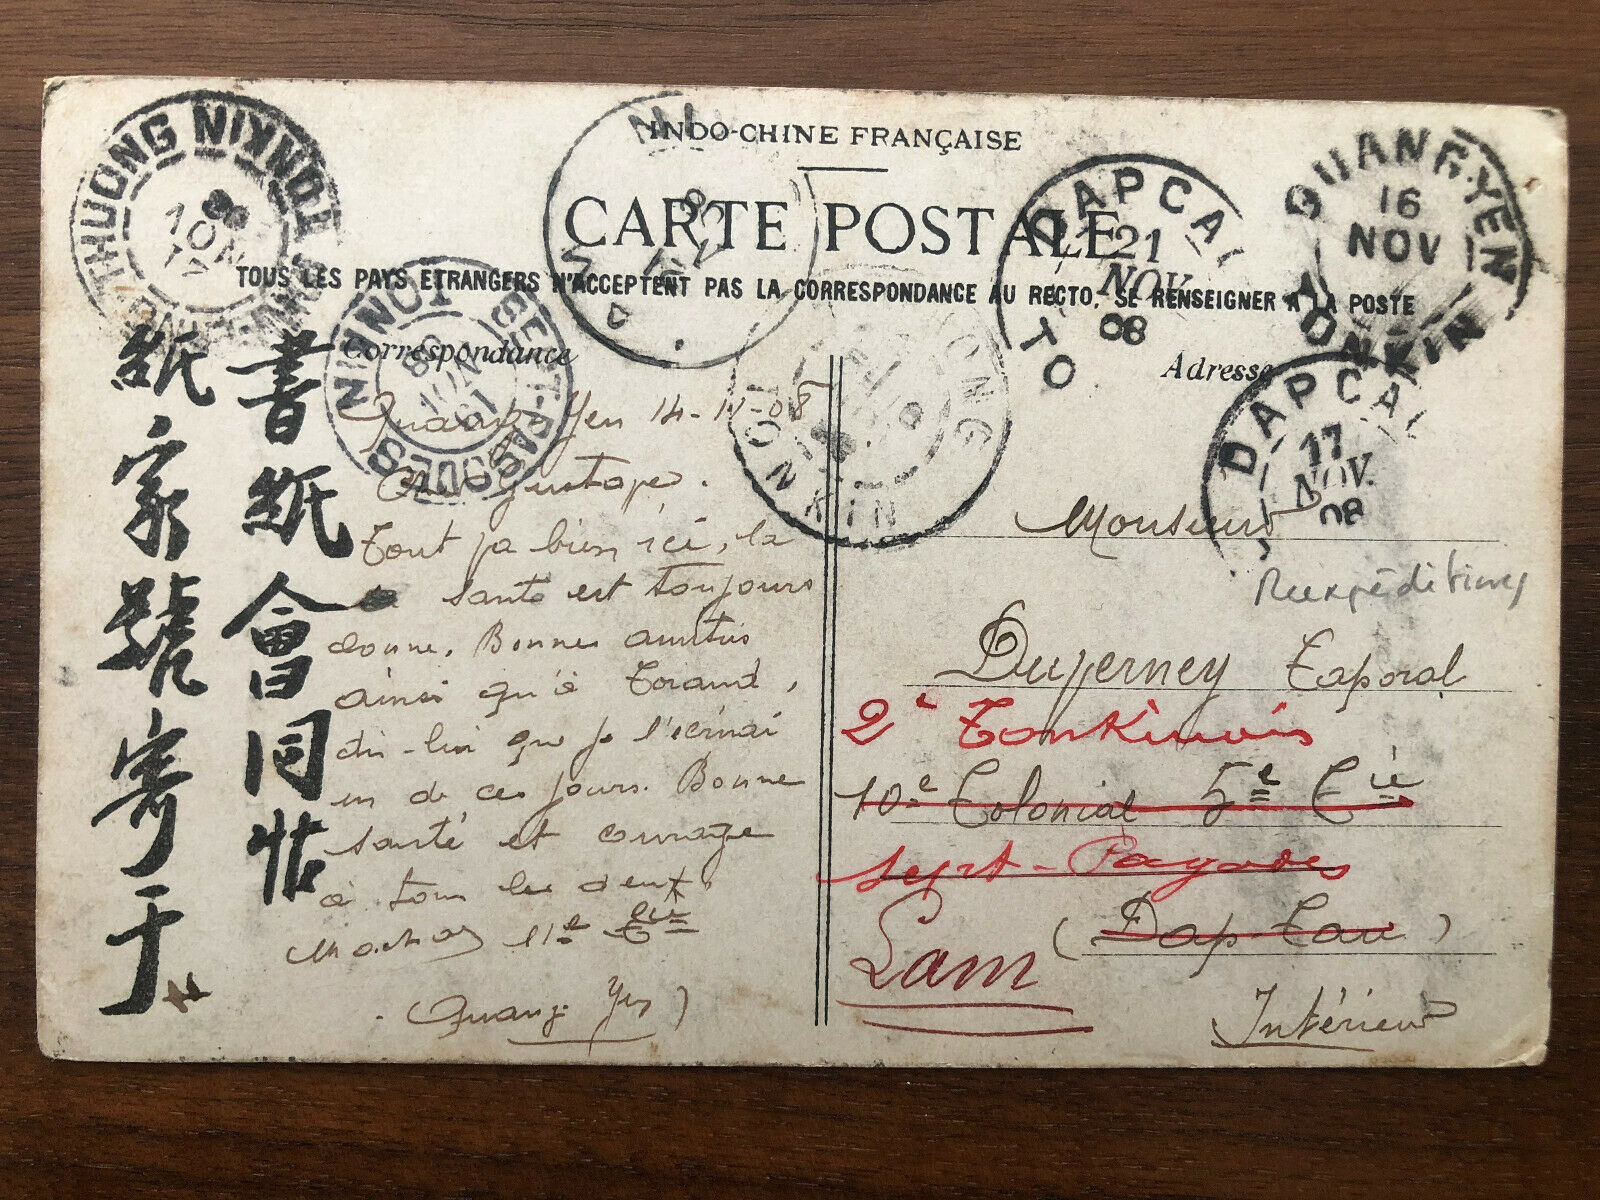 INDO-CHINE FRANÇAISE
CARTE POSTALE
TOUS LES PAYS ETRANGERS N'ACCEPTENT PAS LA CORRESPONDANCE AU RECTO, SE RENSEIGNER A LA POSTE
Correspondance
Adresse
THUONG TONKIN
SEPT-PAGODES TONKIN
DAPCAU TO
21
NOV
08
QUANG-YEN TONKIN
16
NOV
DAPCAU
17
NOV.
08
書紙會同
紙家號寄于
Quang Yen 14-11-08
Tout va bien ici, la
santé est toujours
bonne. Bonnes amitiés
ainsi qu'à
dis-lui que je l'écrirai
un de ces jours. Bonne
santé et courage
à tous les deux
11e Cie
(Quang Yen)
Monsieur
Réexpéditions
Duperney Caporal
2e Tonkinois
10e Colonial 5e Cie
Sept-Pagodes
(Dap-Cau)
Lam
Intérieur